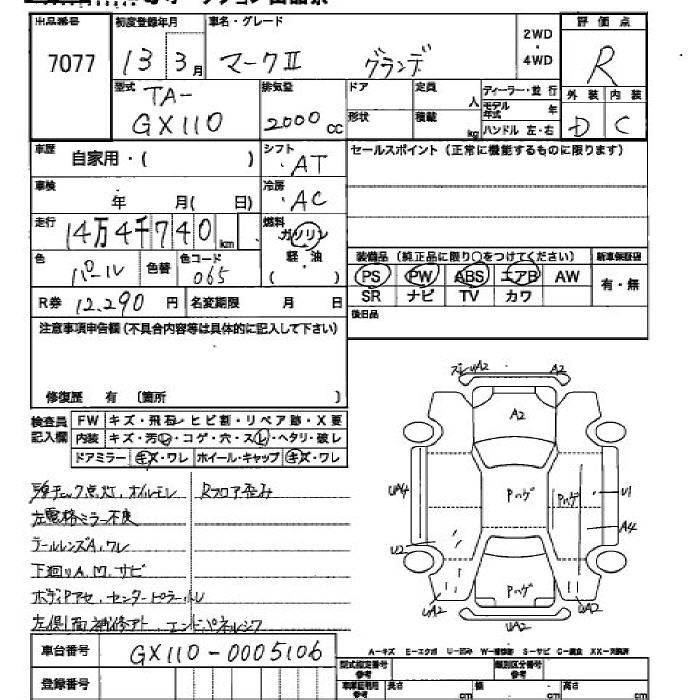 出品番号 初度登録年月 車名・グレード 2WD・4WD 評価点
7077 13 3月 マークⅡ グランデ R
型式 排気量 ドア 定員 人 ディーラー・並行 外装 内装
TA-
GX110 2000cc 形状 積載 kg モデル年式 年 ハンドル 左・右 D C
車歴 自家用・( ) シフト AT セールスポイント (正常に機能するものに限ります)
車検 年 月( 日) 冷房 AC
走行 14万4千740km 燃料 ガソリン
色 パール 色替 色コード 065 軽・油 ( )
装備品 (純正品に限り○をつけてください) 新車保証書
PS PW ABS エアB AW 有・無
SR ナビ TV カワ
R券 12,290円 名変期限 月 日 後日品
注意事項申告欄(不具合内容等は具体的に記入して下さい)
修復歴 有 〔箇所 〕
検査員記入欄 FW キズ・飛石・ヒビ割・リペア跡・X要
内装 キズ・汚し・コゲ・穴・スレ・ヘタリ・破レ
ドアミラー キズ・ワレ ホイール・キャップ キズ・ワレ
Rフロア歪み
左電格ミラー不良
テールレンズA,ワレ
下廻りA.M.サビ
UA2 A2
A2
UA4 Pハゲ Pハゲ U1
A4
U2
Pハゲ
UA2 UA2
UA2
車台番号 GX110-0005106
登録番号
A-キズ E-エクボ U-凹み W-補修跡 S-サビ C-腐食 XX-交換済
型式指定番号 参考 類別区分番号 参考
長さ cm 幅 cm 高さ cm